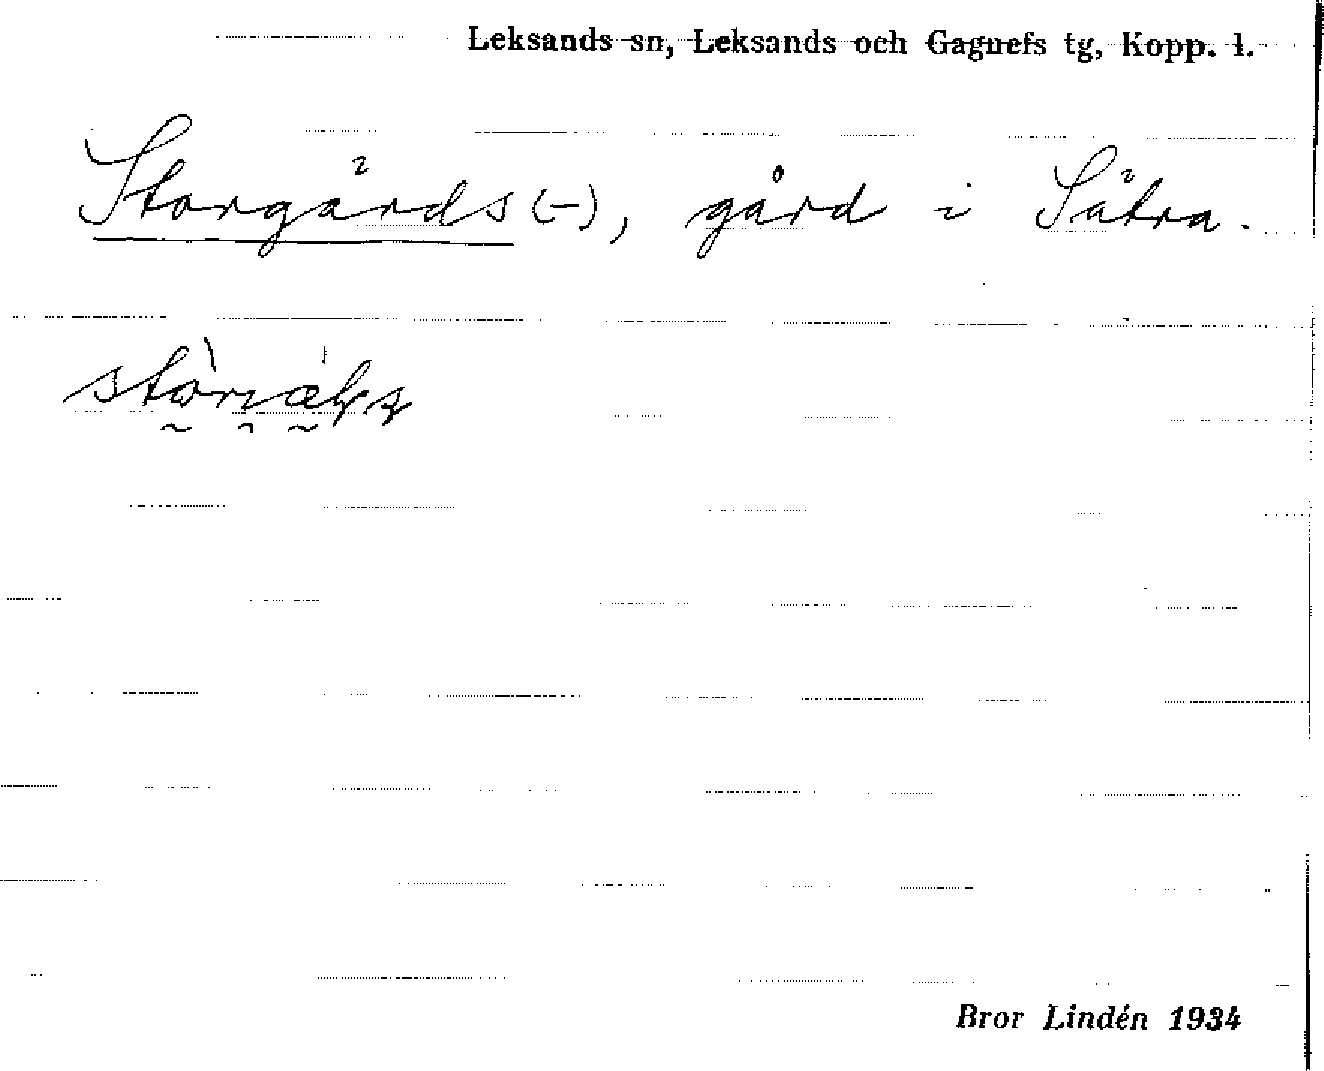 Leksands sn, Leksands och Gagnefs tg, Kopp. l.
Storgårds(-), gård i Sätra.
Bror Lindén 1934